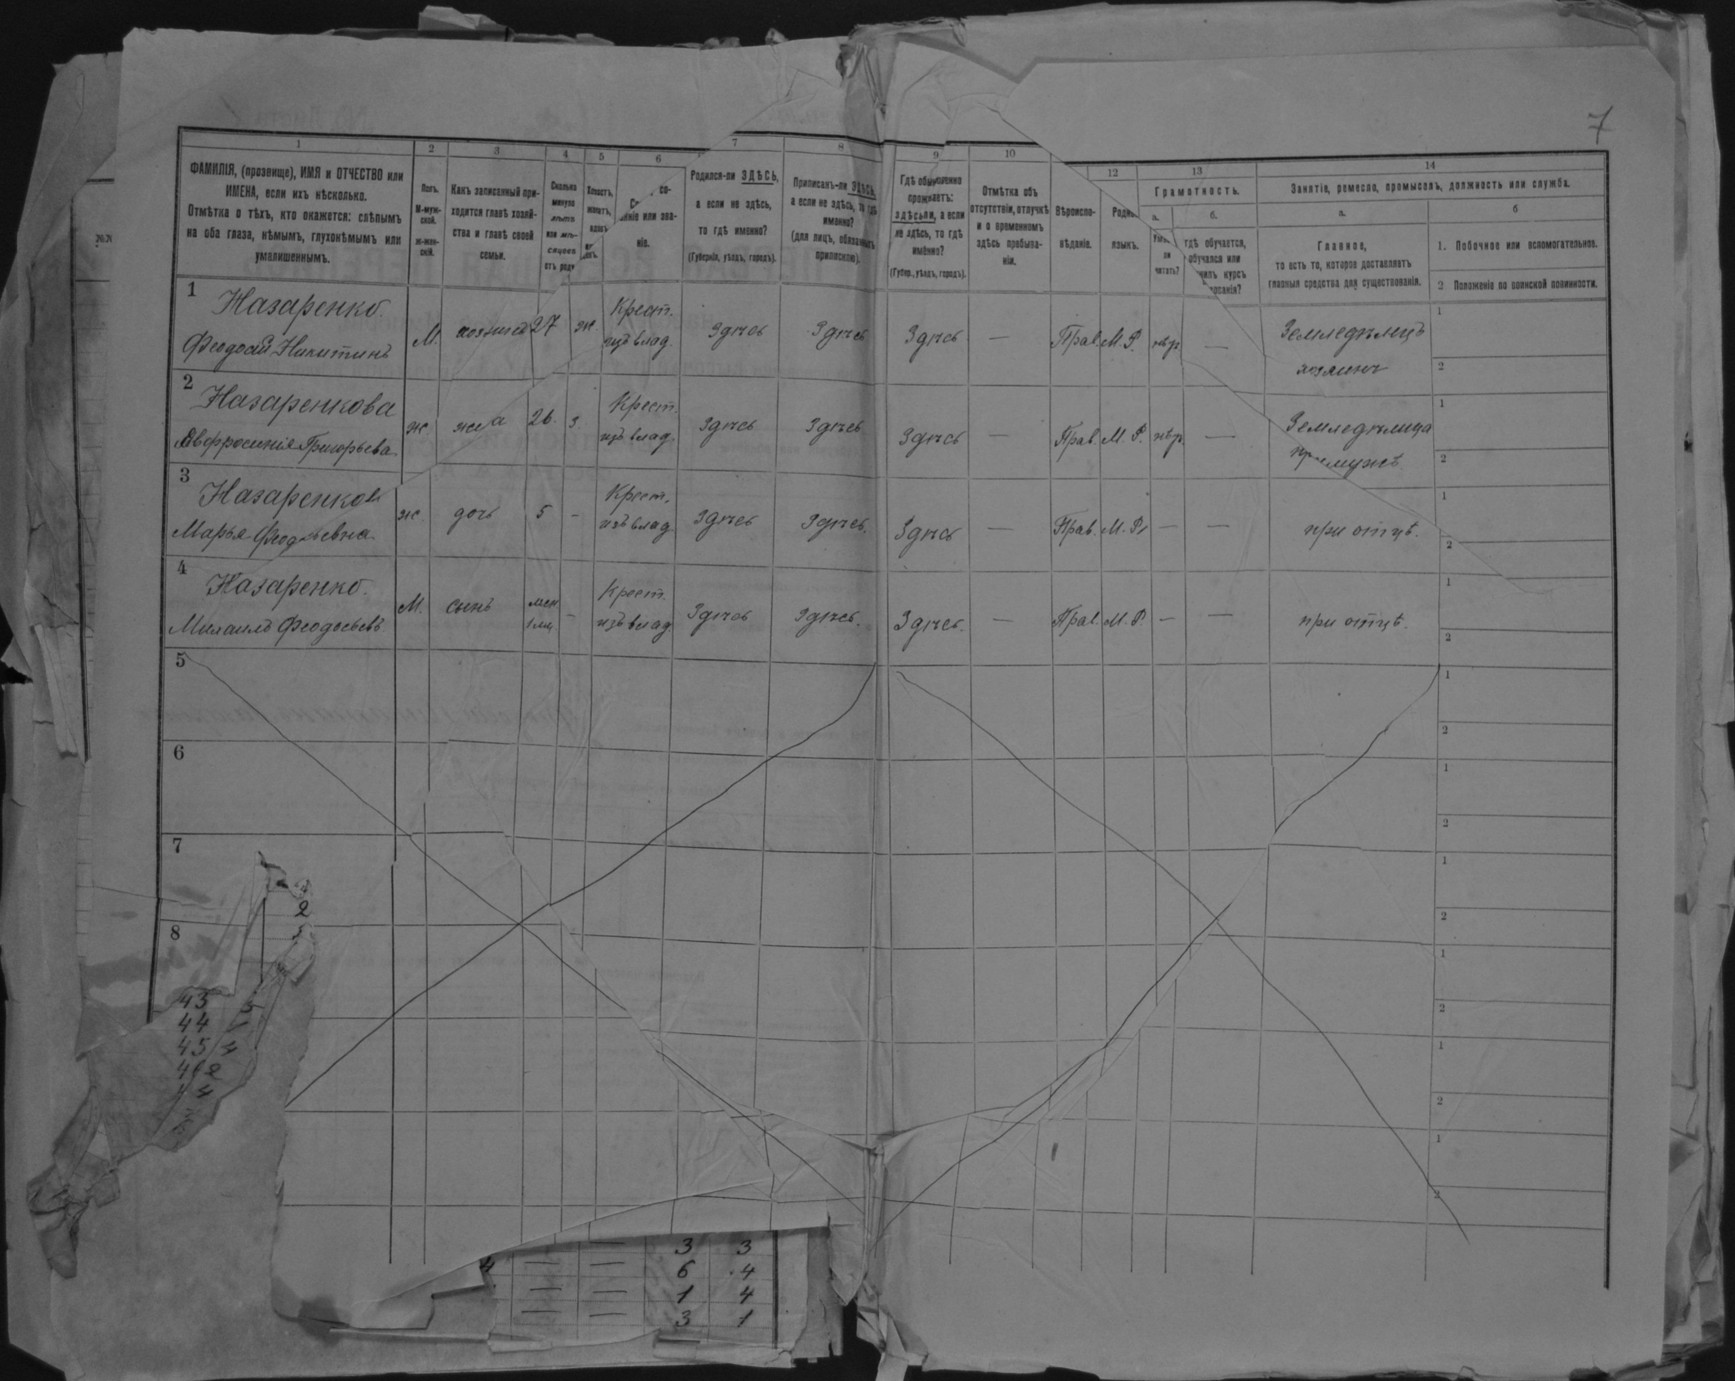 7
1 2 3 4 5 6 7 8 9 10 12 13 14
ФАМИЛІЯ, (прозвище), ИМЯ и ОТЧЕСТВО или
ИМЕНА, если ихъ нѣсколько.
Отмѣтка о тѣхъ, кто окажется: слѣпымъ
на оба глаза, нѣмымъ, глухонѣмымъ или
умалишеннымъ.
Полъ.
М-муж-
ской.
Ж-жен-
скій.
Какъ записанный при-
ходится главѣ хозяй-
ства и главѣ своей
семьи.
Сколько
минуло
лѣтъ
или мѣ-
сяцевъ
отъ роду
Холостъ,
женатъ,
вдовъ
со-
или зва-
ніе.
Родился-ли ЗДѢСЬ,
а если не здѣсь,
то гдѣ именно?
(Губернія, уѣздъ, городъ).
Приписанъ-ли ЗДѢСЬ,
а если не здѣсь, то гдѣ
именно?
(для лицъ, обязанныхъ
припискою).
Гдѣ обыкновенно
проживаетъ:
здѣсь-ли, а если
не здѣсь, то гдѣ
именно?
(Губер., уѣздъ, городъ).
Отмѣтка объ
отсутствіи, отлучкѣ
и о временномъ
здѣсь пребыва-
ніи.
Вѣроиспо-
вѣданіе.
Родн
языкъ.
Грамотность.
а. б.
читать?
гдѣ обучается,
обучался или
курсъ
Занятіе, ремесло, промыселъ, должность или служба.
а. б
Главное,
то есть то, которое доставляетъ
главныя средства для существованія.
1. Побочное или вспомогательное.
2 Положеніе по воинской повинности.
1 Назаренко
Феодосій Никитинъ М. хозяинъ 27 ж. Крест. изъ влад. Здѣсь Здѣсь Здѣсь — Прав. М. Р. нѣтъ — Земледѣлецъ
хозяинъ
1
2
2 Назаренкова
Евфросинія Григорьева ж. жена 26. з Крест. изъ влад. Здѣсь Здѣсь Здѣсь — Прав. М. Р. — Земледѣлица
при мужѣ.
1
2
3 Назаренкова
Марья Феодосьевна ж. дочь 5 — Крест. изъ влад. Здѣсь Здѣсь. Здѣсь — Прав. М. Р. — — при отцѣ.
1
2
4 Назаренко.
Михаилъ Феодосьевъ М. сынъ — Крест. изъ влад Здѣсь Здѣсь. Здѣсь. — Прав. М. Р. — — при отцѣ.
1
2
5
1
2
6
1
2
7
1
2
8
1
2
1
2
1
2
2
43
44
45 4
2
4
3 3
6 4
1 4
3 1